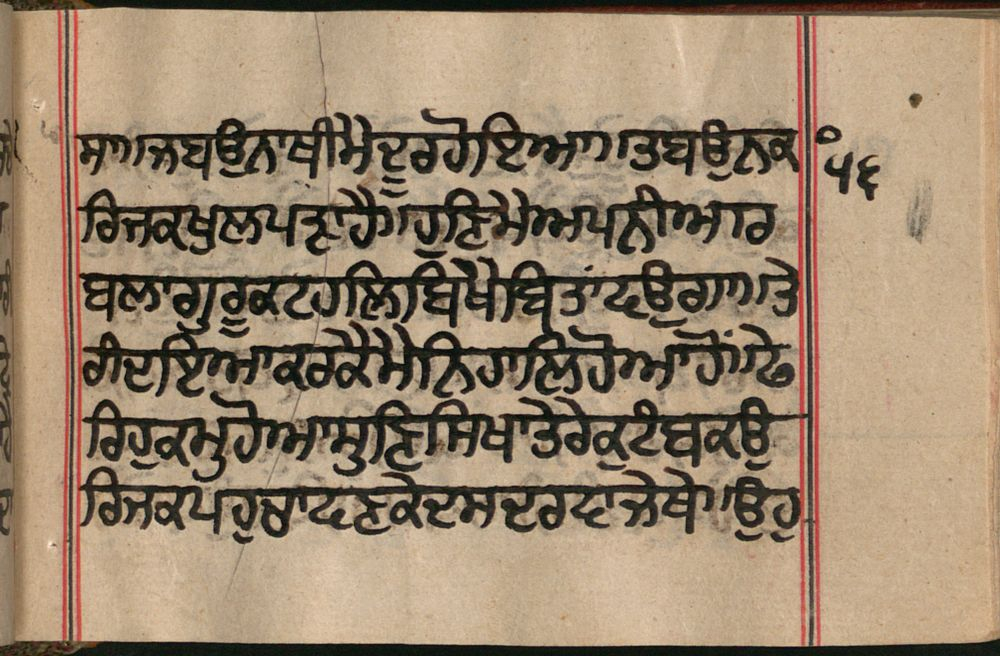 ਸਾ॥ਜਬਉਨਾਥੀਮੈਦੂਰਹੋਇਆ॥ਤਬਉਨਕ
ਰਿਜਕਖੁਲਪੜਾਹੈ॥ਹੁਣਿਮੈਅਪਨੀਆਰ
ਬਲਾਗੁਰੂਕਟਹਲਿਬਿਖੈਬਿਤਾਂਦਉਗਾ॥ਤੇ
ਰੀਦਇਆਕਰਕੈਮੈਨਿਹਾਲਿਹੋਆਹੋਂ॥ਫੇ
ਰਿਹੁਕਮੁਹੋਆਸੁਣਿਸਿਖਾਤੇਰੇਕੁਟੰਬਕਉ
ਰਿਜਕਪਹੁਚਾਵਣਕੇਦਸਦਰਵਾਜੇਥੇ॥ਉਹੁ
੦
੫੬